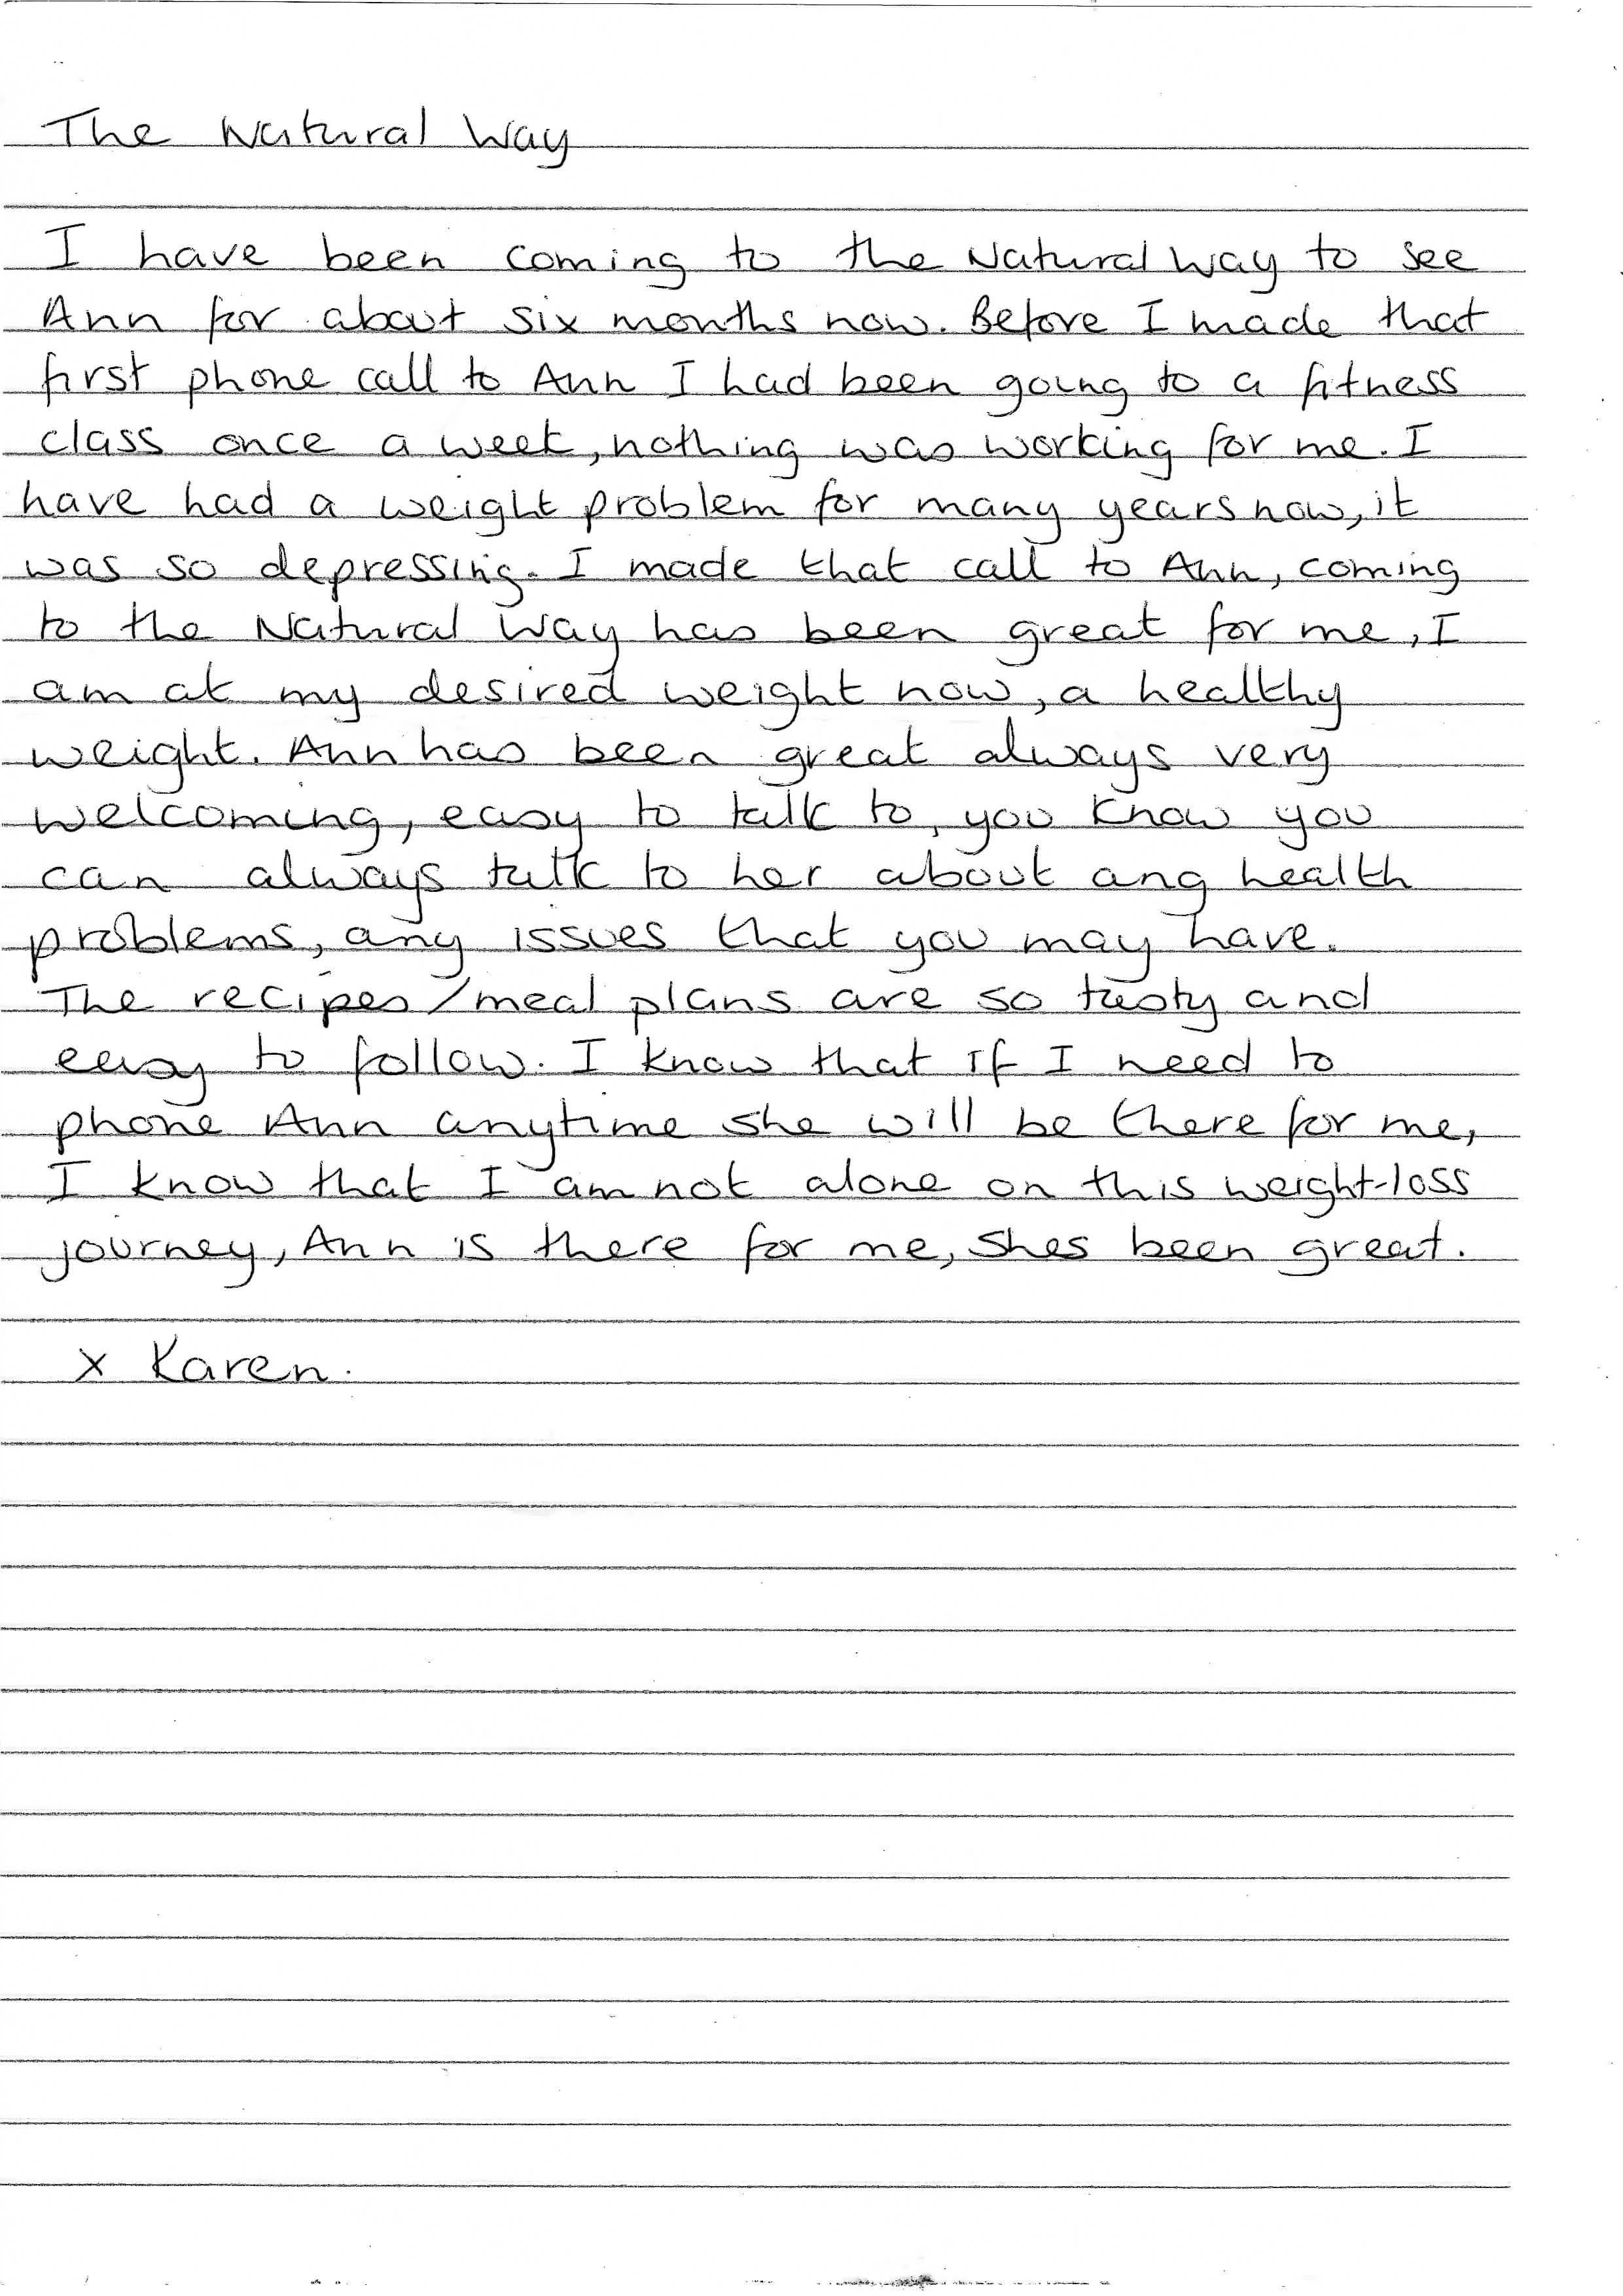 The Natural Way
I have been coming to the Natural Way to see
Ann for about six months now. Before I made that
first phone call to Ann I had been going to a fitness
class once a week, nothing was working for me. I
have had a weight problem for many years now, it
was so depressing. I made that call to Ann, coming
to the Natural Way has been great for me, I
am at my desired weight now, a healthy
weight. Ann has been great always very
welcoming, easy to talk to, you know you
can always talk to her about any health
problems, any issues that you may have.
The recipes/meal plans are so tasty and
easy to follow. I know that if I need to
phone Ann anytime she will be there for me,
I know that I am not alone on this weight-loss
journey, Ann is there for me, shes been great.
x Karen.